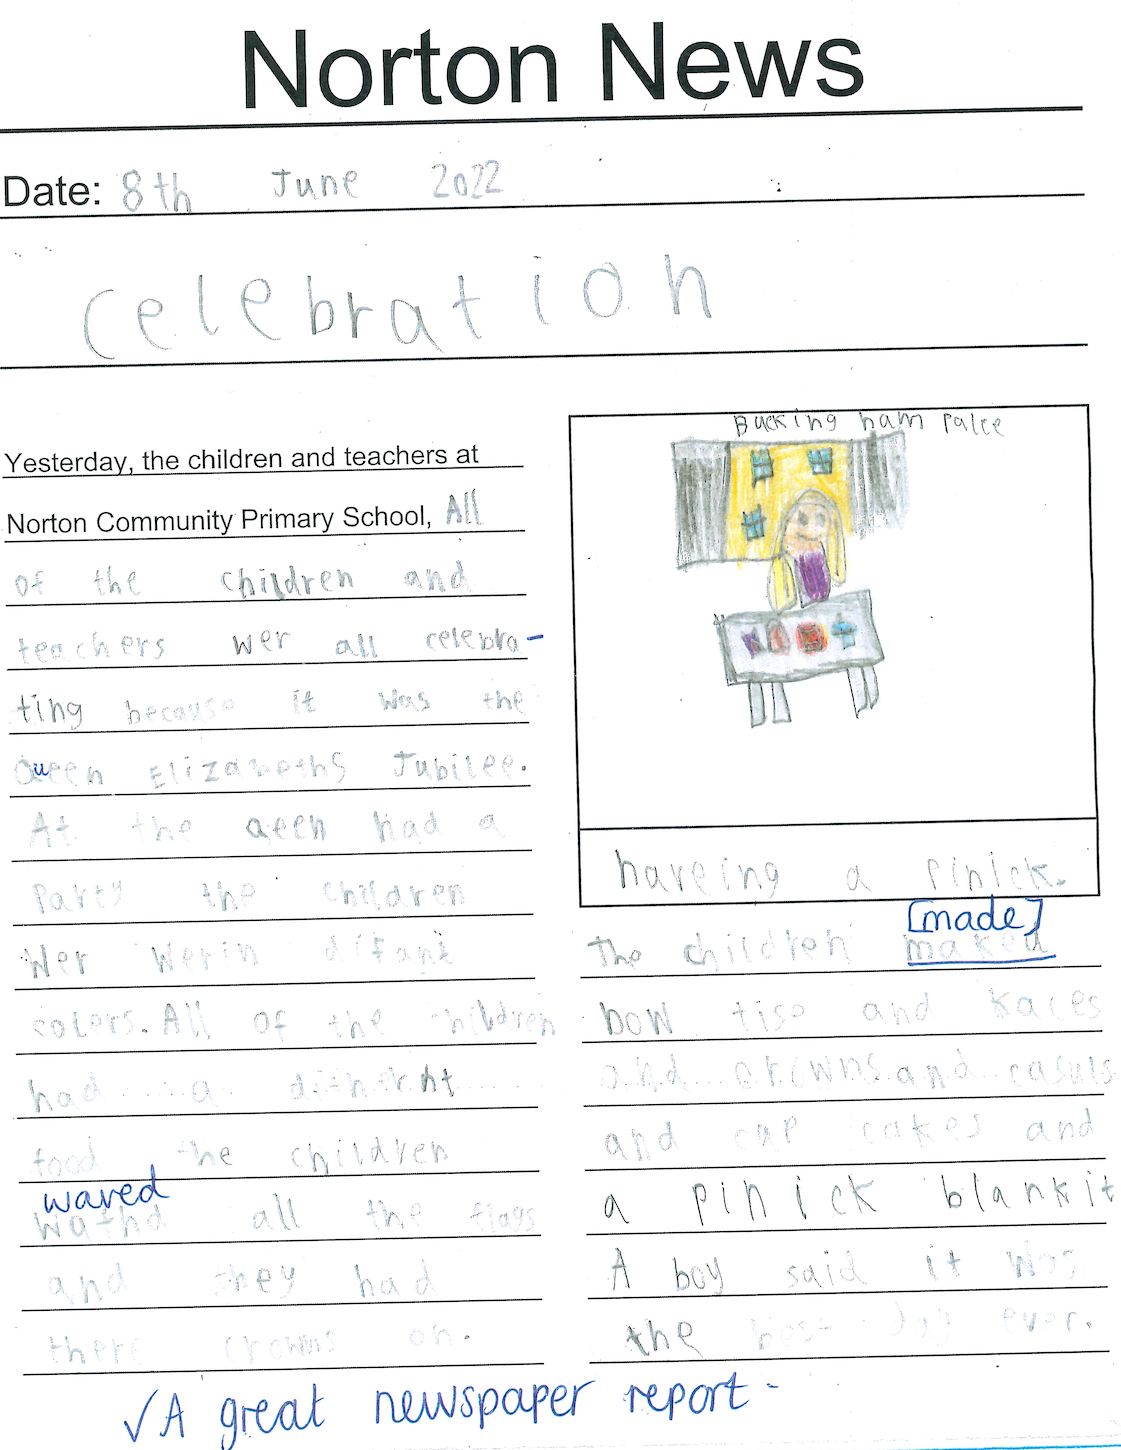 Norton News
Date: 8th June 2022
celebration
Yesterday, the children and teachers at
Norton Community Primary School, All
of the children and
teachers wer all celebra-
ting because it was the
Queen Elizabeths Jubilee.
At the qeen had a
Party the children
Wer Werin difant
colors. All of the children
had a diffrent
food the children
waved
wathd all the flags
and they had
there crowns on.
Bucking ham Palce
haveing a pinick.
[made]
the children maked
bow tise and kaces
and crowns and casuls
and cup cakes and
a pinick blankit
A boy said it was
the best day ever.
✓A great newspaper report-